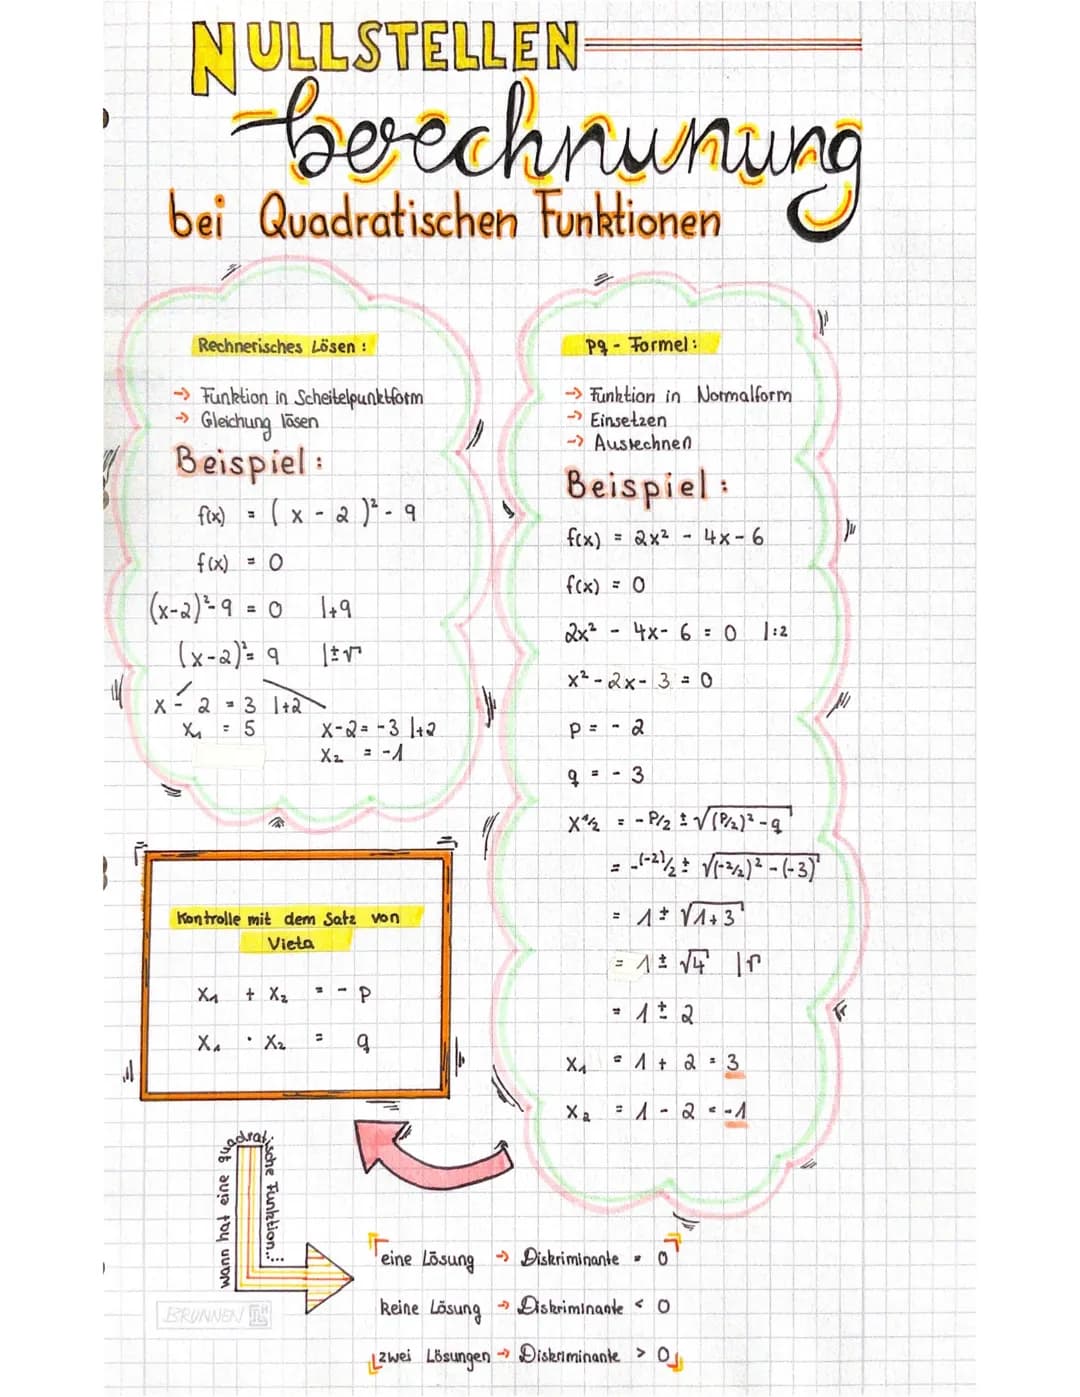 NULLSTELLEN
berechnunung
bei Quadratischen Funktionen
Rechnerisches Lösen:
→ Funktion in Scheitelpunktform
→ Gleichung lösen
Beispiel:
f(x) = (x - 2)² - 9
f(x) = 0
(x-2)²-9 = 0 |+9
(x-2)² = 9 |±√
x - 2 = 3 |+2
x₁ = 5
x-2 = -3 |+2
x₂ = -1
pq - Formel:
→ Funktion in Normalform
→ Einsetzen
→ Ausrechnen
Beispiel:
f(x) = 2x² - 4x - 6
f(x) = 0
2x² - 4x - 6 = 0 |:2
x² - 2x - 3 = 0
p = - 2
q = - 3
x1/2 = - P/2 ± √(P/2)² - q
= -(-2)/2 ± √(-2/2)² - (-3)
= 1 ± √1+3
= 1 ± √4 |√
= 1 ± 2
x₁ = 1 + 2 = 3
x₂ = 1 - 2 = -1
Kontrolle mit dem Satz von
Vieta
x₁ + x₂ = - p
x₁ · x₂ = q
wann hat eine quadratische Funktion...:
eine Lösung → Diskriminante = 0
keine Lösung → Diskriminante < 0
zwei Lösungen → Diskriminante > 0
BRUNNEN